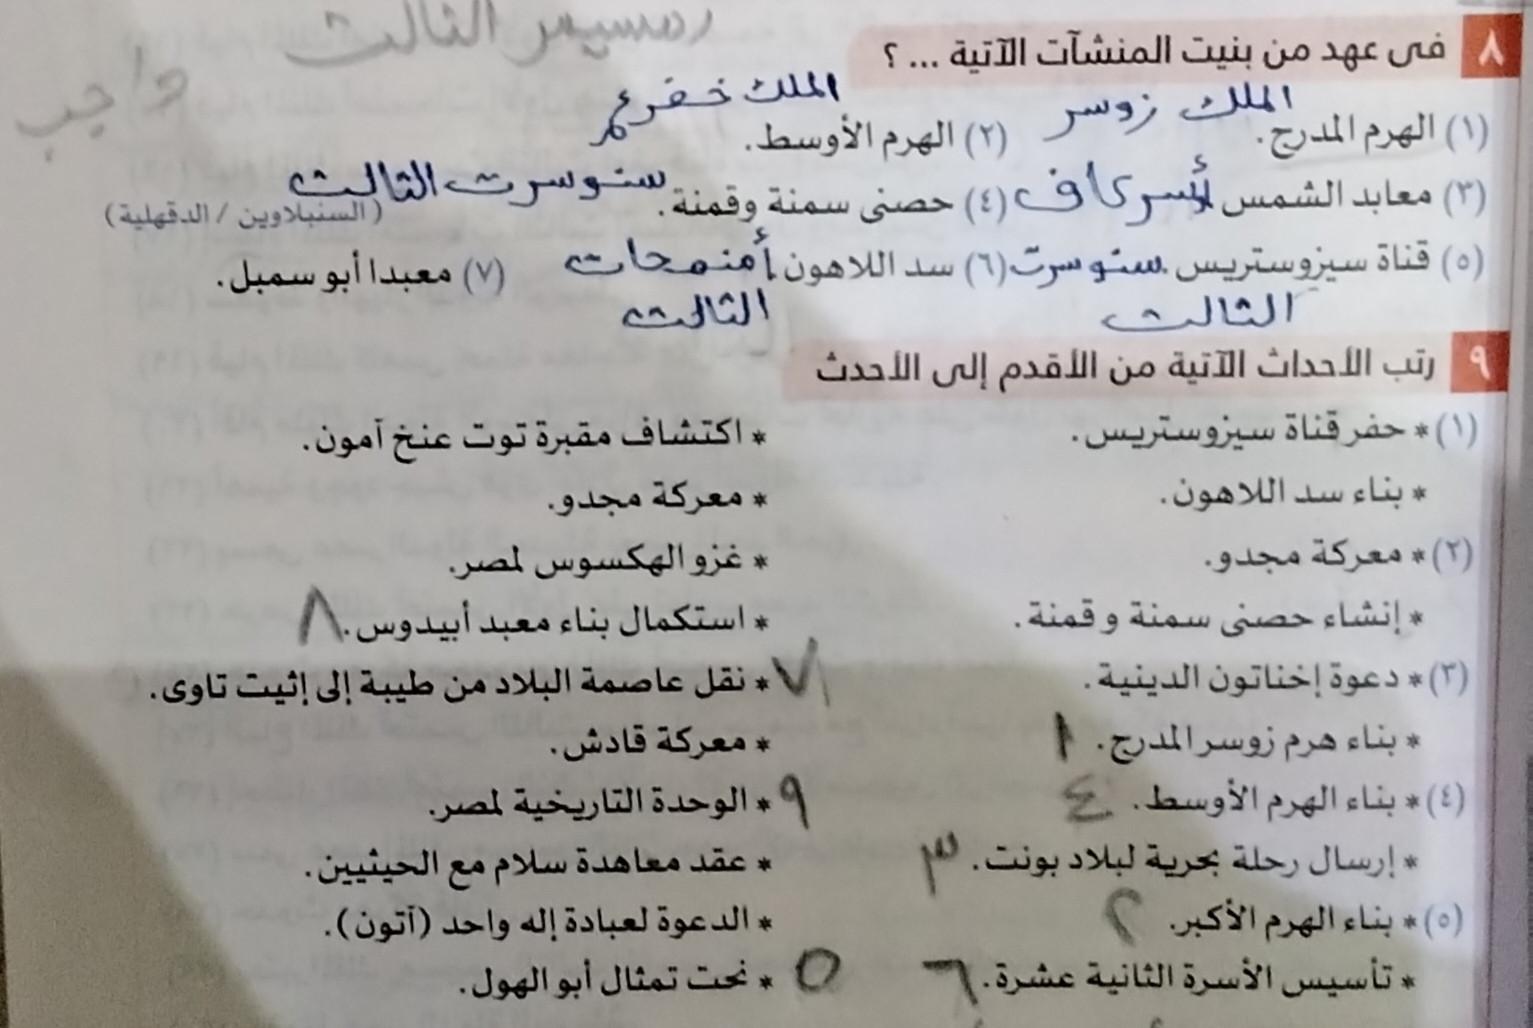 رمسيس الثالث
واجب
٨ فى عهد من بنيت المنشآت الآتية ... ؟
الملك زوسر الملك خفرع
(١) الهرم المدرج. (٢) الهرم الأوسط.
(٣) معابد الشمس أسركاف (٤) حصنى سمنة وقمنة. سنوسرت الثالث
(السنبلاوين / الدقهلية)
(٥) قناة سيزوستريس. سنوسرت (٦) سد اللاهون أمنمحات (٧) معبدا أبو سمبل.
الثالث الثالث
٩ رتب الأحداث الآتية من الأقدم إلى الأحدث
(١) * حفر قناة سيزوستريس. * اكتشاف مقبرة توت عنخ آمون.
* بناء سد اللاهون. * معركة مجدو.
(٢) * معركة مجدو. * غزو الهكسوس لمصر.
* إنشاء حصنى سمنة وقمنة. * استكمال بناء معبد أبيدوس. ٨
(٣) * دعوة إخناتون الدينية. ٧ * نقل عاصمة البلاد من طيبة إلى إثيت تاوى.
* بناء هرم زوسر المدرج. ١ * معركة قادش.
(٤) * بناء الهرم الأوسط. ٤ ٩ * الوحدة التاريخية لمصر.
* إرسال رحلة بحرية لبلاد بونت. ٣ * عقد معاهدة سلام مع الحيثيين.
(٥) * بناء الهرم الأكبر. ٢ * الدعوة لعبادة إله واحد (آتون).
* تأسيس الأسرة الثانية عشرة. ٦ ٥ * نحت تمثال أبو الهول.